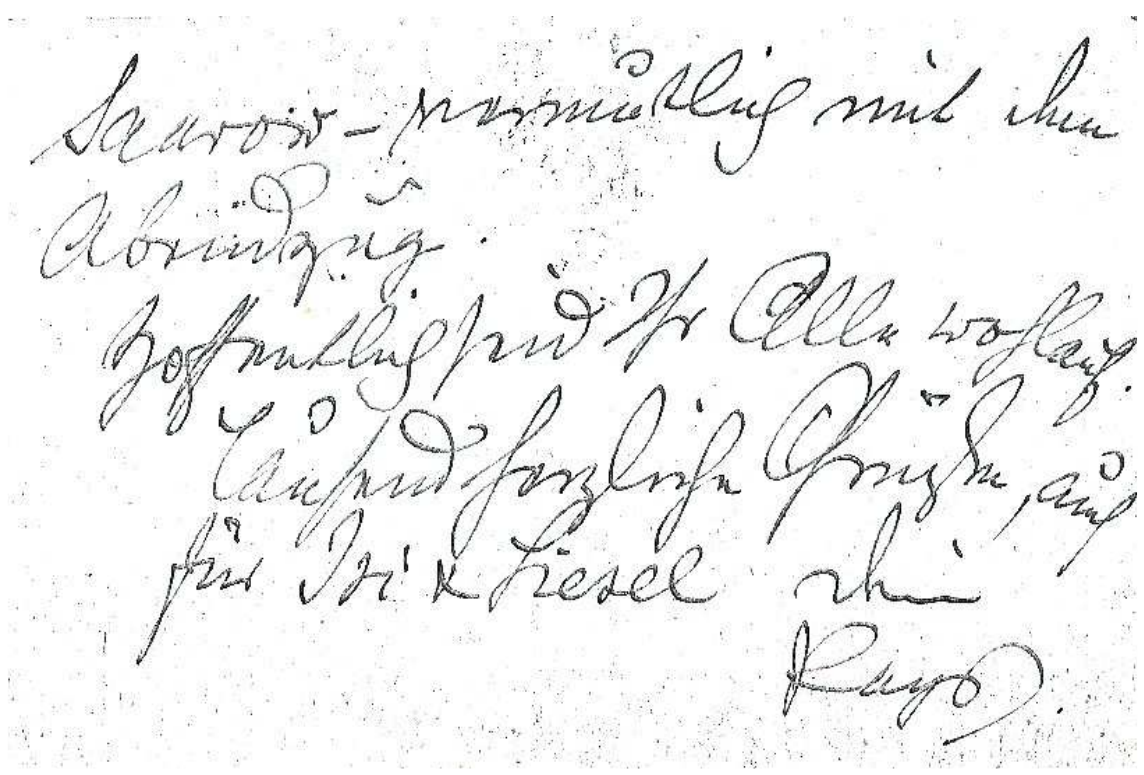 Saarow – vermutlich mit dem
Abendzug.
Hoffentlich seid Ihr Alle wohlauf.
Tausend herzliche Grüße, auch
für Isi & Liesel dein